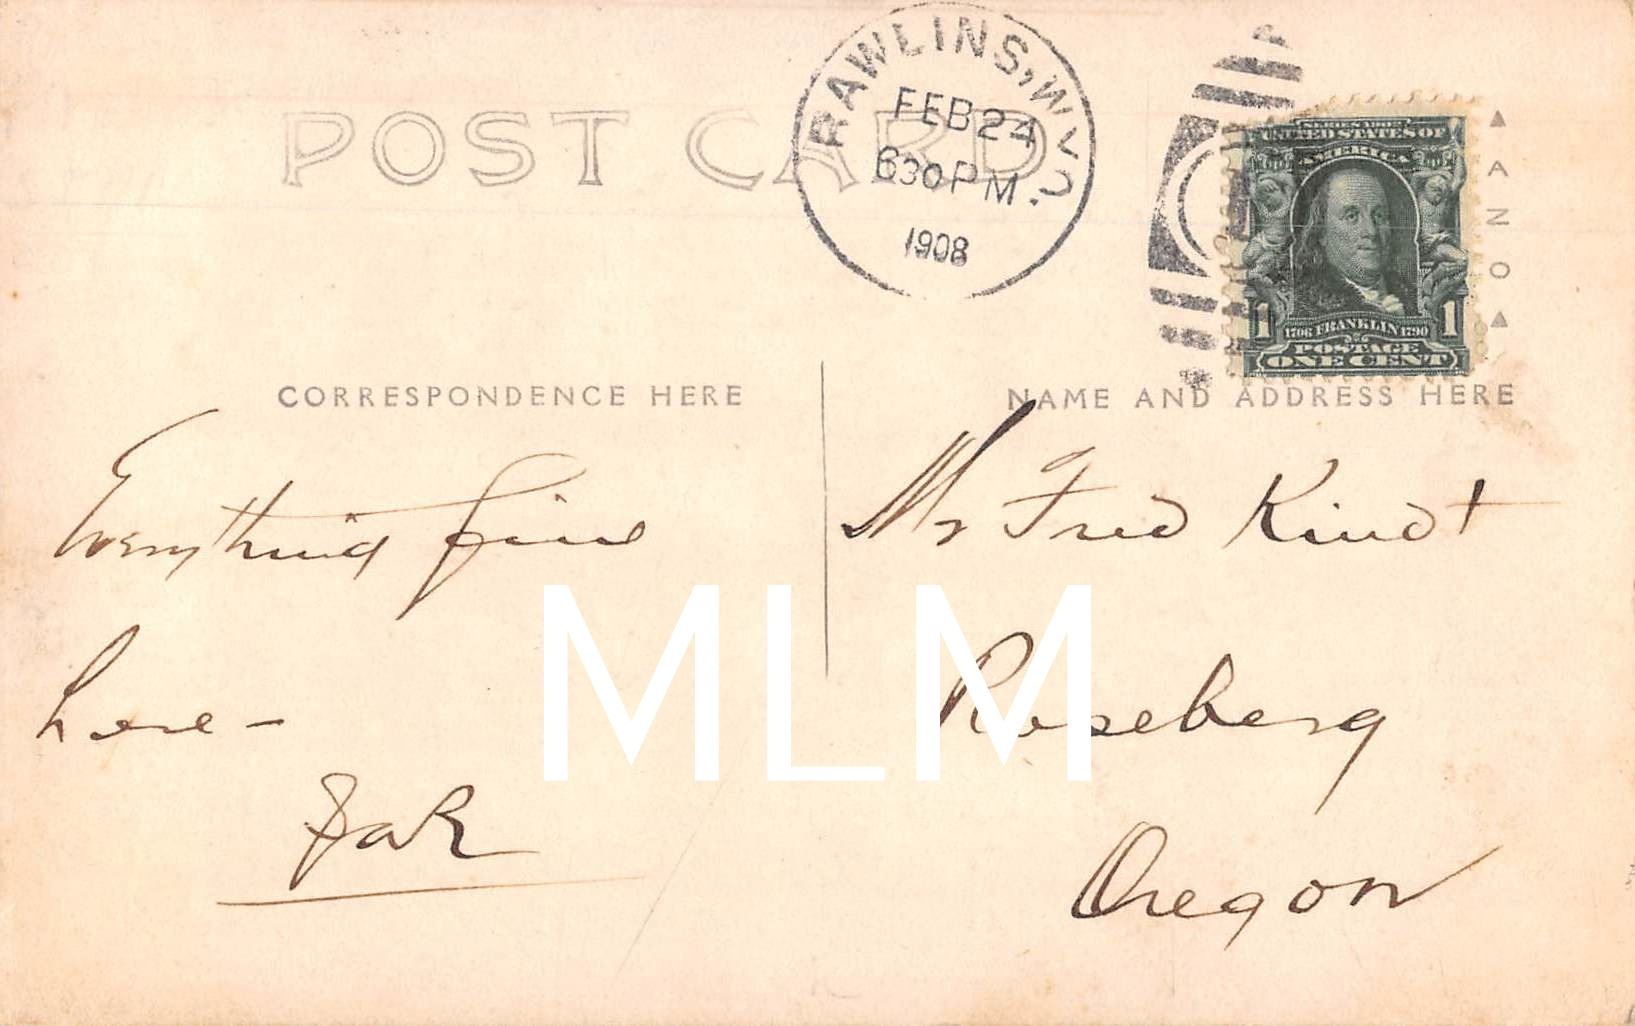 POST CARD
RAWLINS, WYO.
FEB 24
630 PM
1908
UNITED STATES OF
AMERICA
1706 FRANKLIN 1790
1 1
POSTAGE
ONE CENT
AZO
CORRESPONDENCE HERE
NAME AND ADDRESS HERE
Everything fine
here -
Mr Fred Kindt
Roseberg
Oregon
MLM